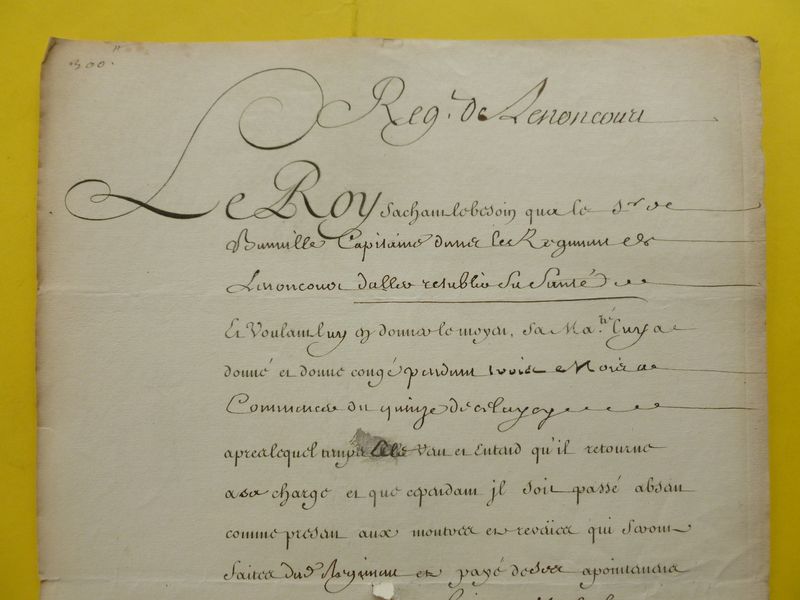 300.ᵗᵗ
Reg.ᵗ De Lenoncourt
Le Roy sachant le besoin que a le S.ʳ de
Capitaine dans le Regiment de
Lenoncour d'aller restablir sa santé
Et Voulant luy en donner le moyen, sa Ma.ᵗᵉ luy a
donné et donne congé pendant trois Mois a
Commencer du quinze de celuy cy
apres lequel temps Elle Veut et Entend qu'il retourne
a sa charge et que cependant jl soit passé absent
comme present aux montres et reveües qui seront
faites dud. Regiment et payé de ses apointemens